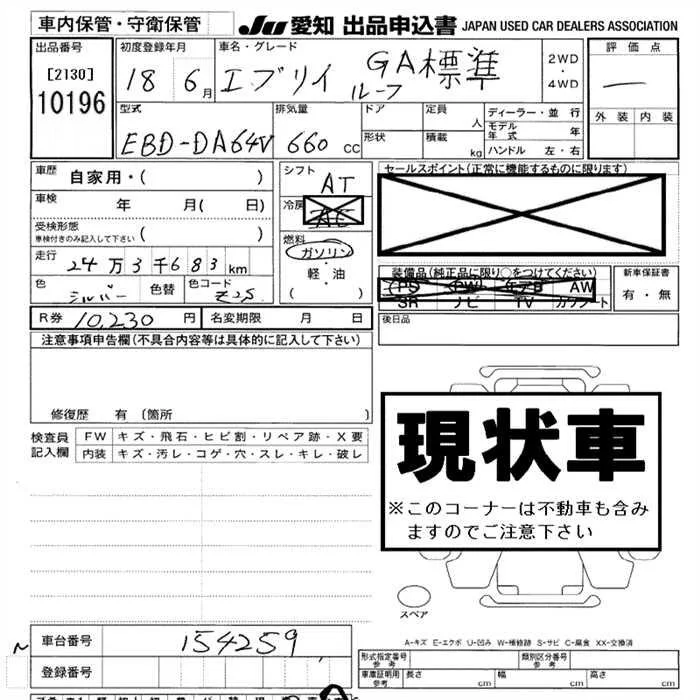 車内保管・守衛保管
JU 愛知 出品申込書 JAPAN USED CAR DEALERS ASSOCIATION
出品番号 初度登録年月 車名・グレード 評価点
[2130] 10196 18 6月 エブリイ GA標準ルーフ 2WD・4WD 一
型式 排気量 ドア 定員 人 ディーラー・並行 外装 内装
EBD-DA64V 660 cc 形状 積載 kg モデル年式 年
ハンドル 左・右
車歴 自家用・( ) シフト AT セールスポイント(正常に機能するものに限ります)
車検 年 月( 日) 冷房 AC
受検形態 車検付きのみ記入して下さい ( ) 燃料 ガソリン・軽・油 ( )
走行 24万3千683km
装備品(純正品に限り○をつけてください) 新車保証書
色 シルバー 色替 色コード Z2S PS PW エアB AW 有・無
SR ナビ TV カワシート
R券 10,230円 名変期限 月 日 後日品
注意事項申告欄(不具合内容等は具体的に記入して下さい)
修復歴 有 (箇所 )
検査員記入欄 FW キズ・飛石・ヒビ割・リペア跡・X要
内装 キズ・汚レ・コゲ・穴・スレ・キレ・破レ
現状車
※このコーナーは不動車も含み
ますのでご注意下さい
スペア
A-キズ E-エクボ U-凹み W-補修跡 S-サビ C-腐食 XX-交換済
車台番号 154259
形式指定番号 参考 類別区分番号 参考
登録番号
車庫証明用 参考 長さ cm 幅 cm 高さ cm